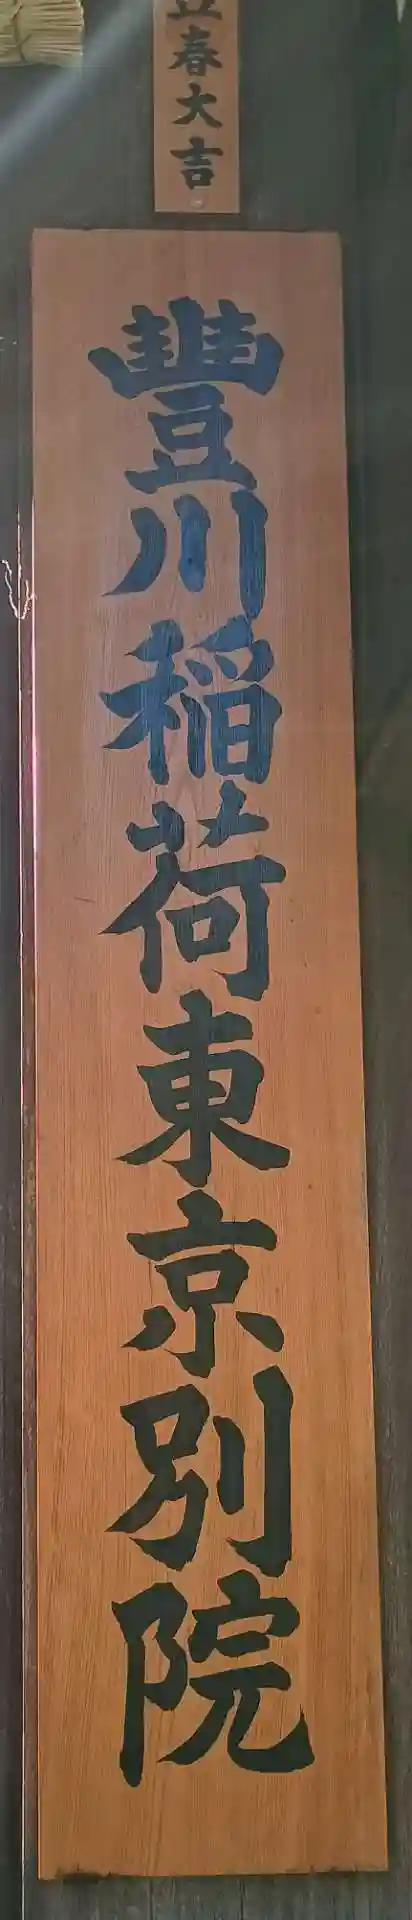 立春大吉
豐川稲荷東京別院